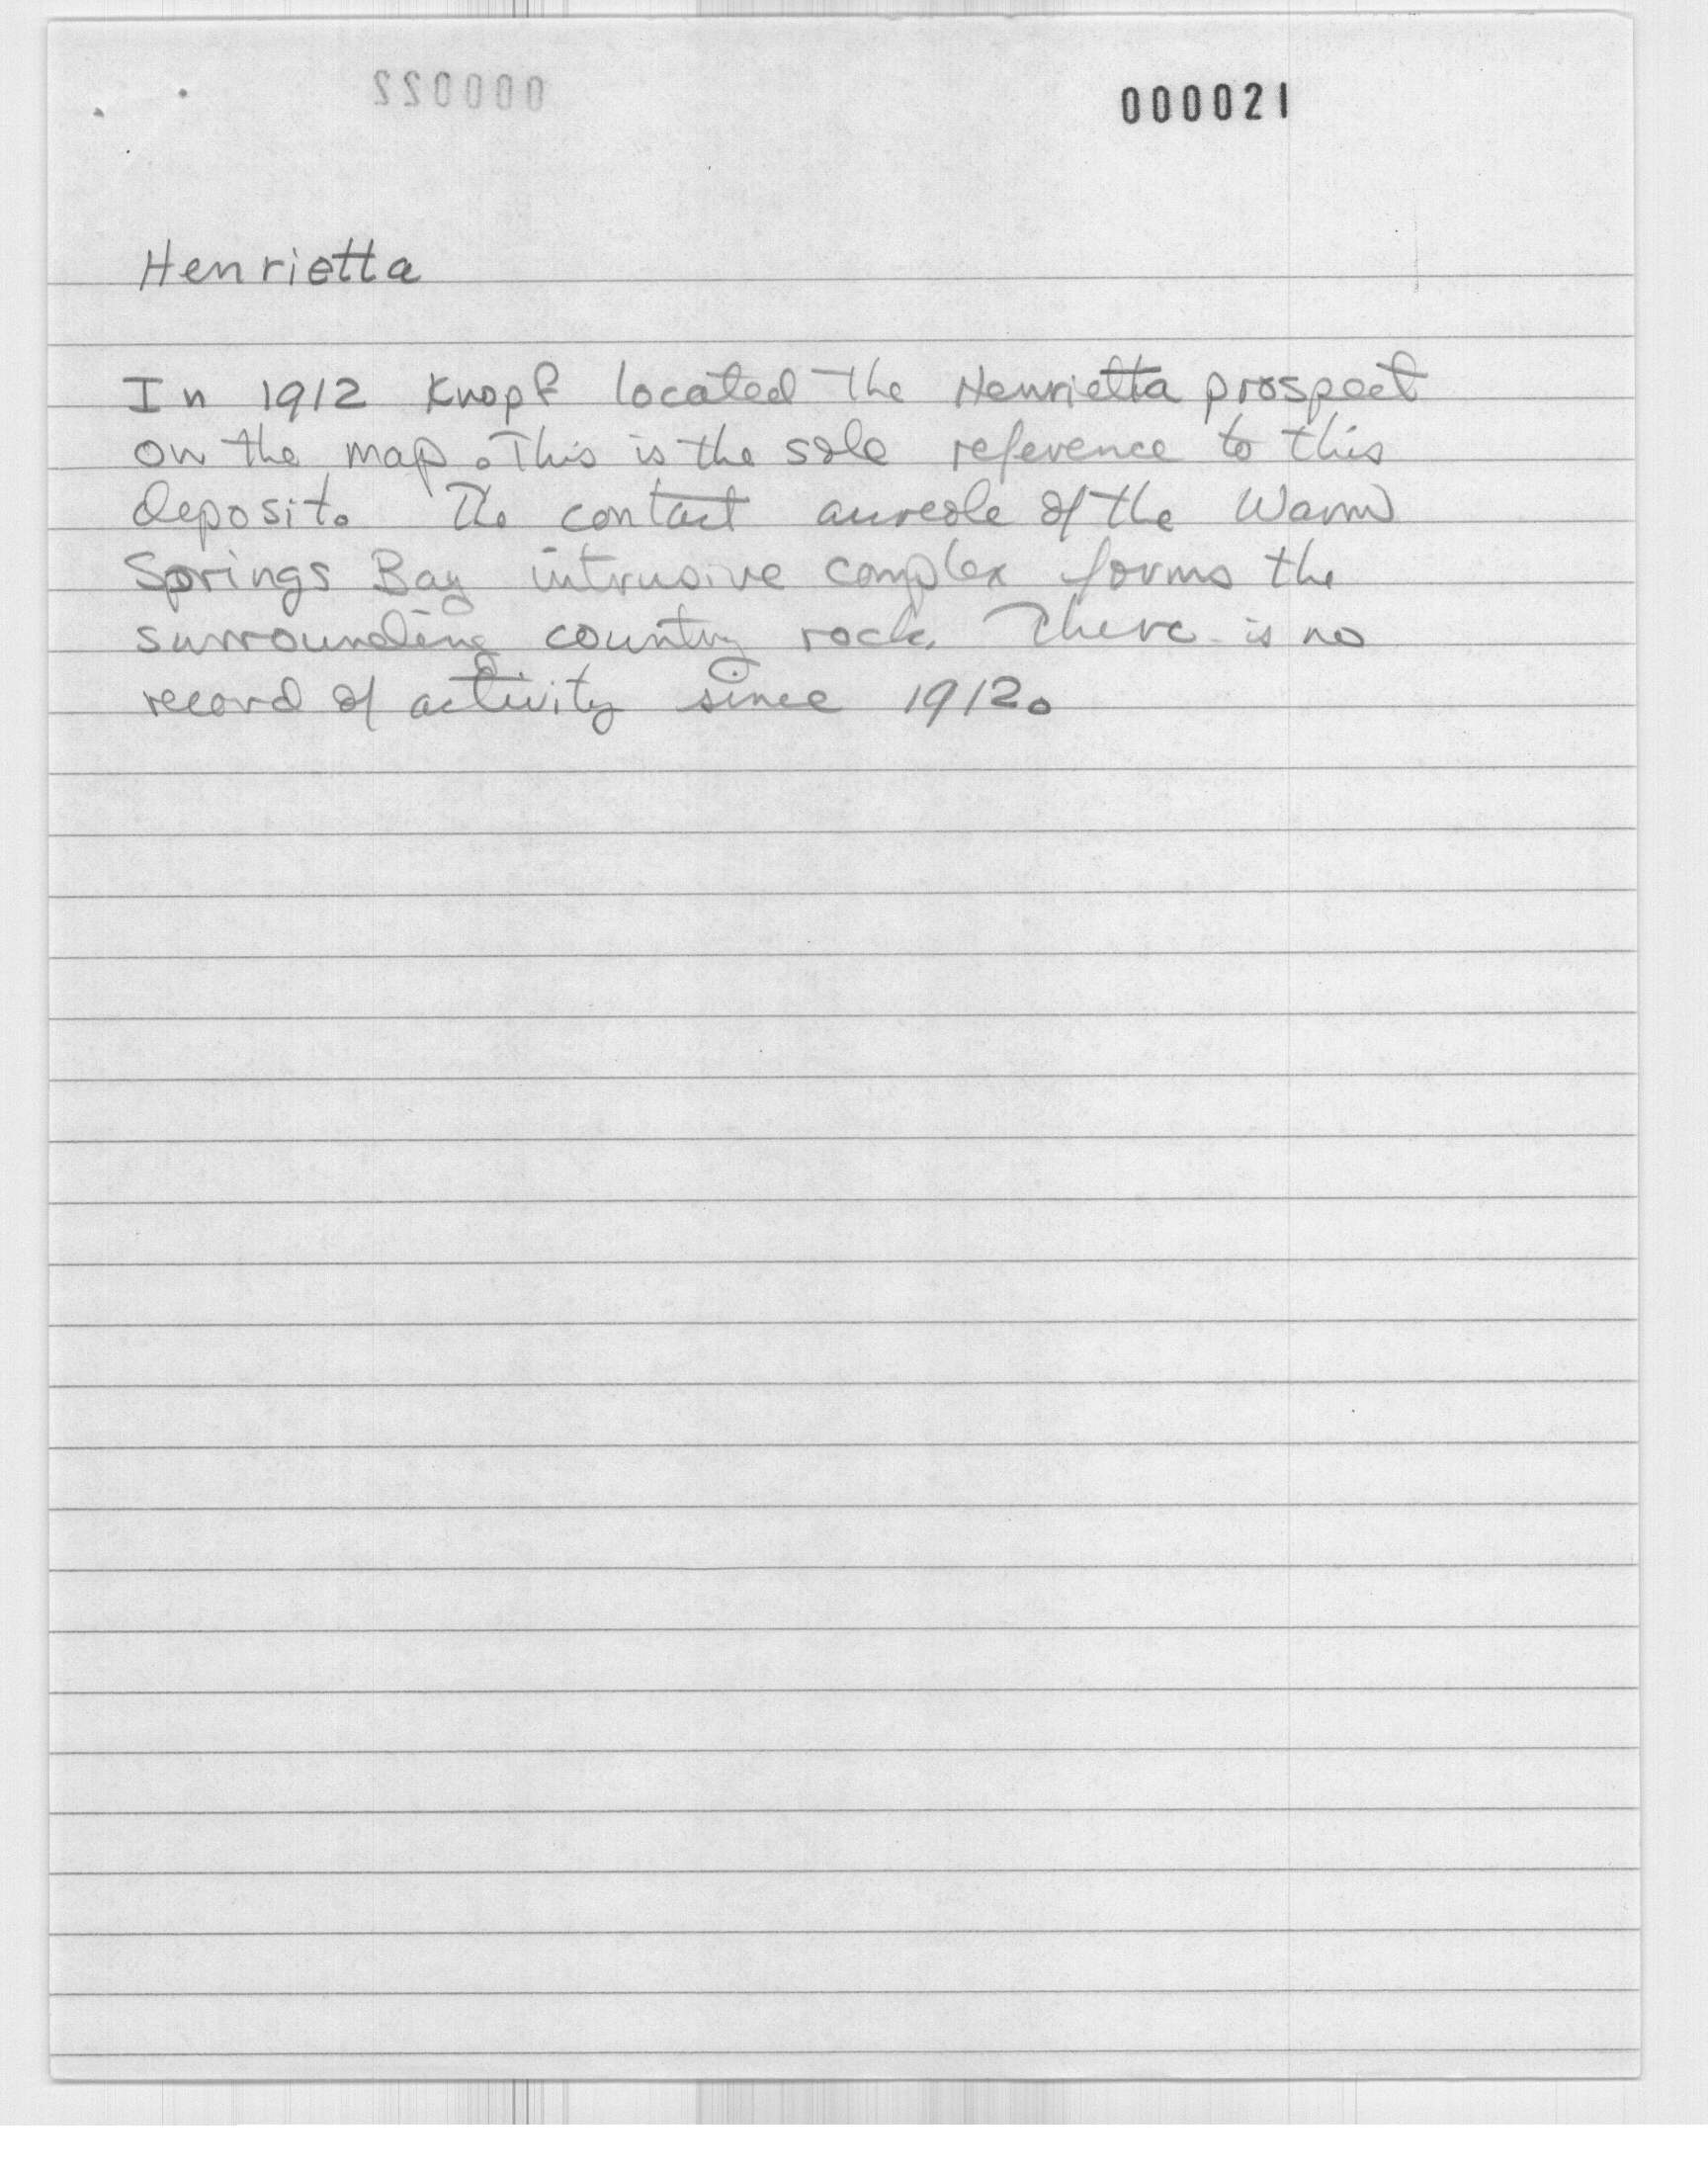 000021
Henrietta
In 1912 Knopf located the Henrietta prospect
on the map. This is the sole reference to this
deposit. The contact aureole of the Warm
Springs Bay intrusive complex forms the
surrounding country rock. There is no
record of activity since 1912.